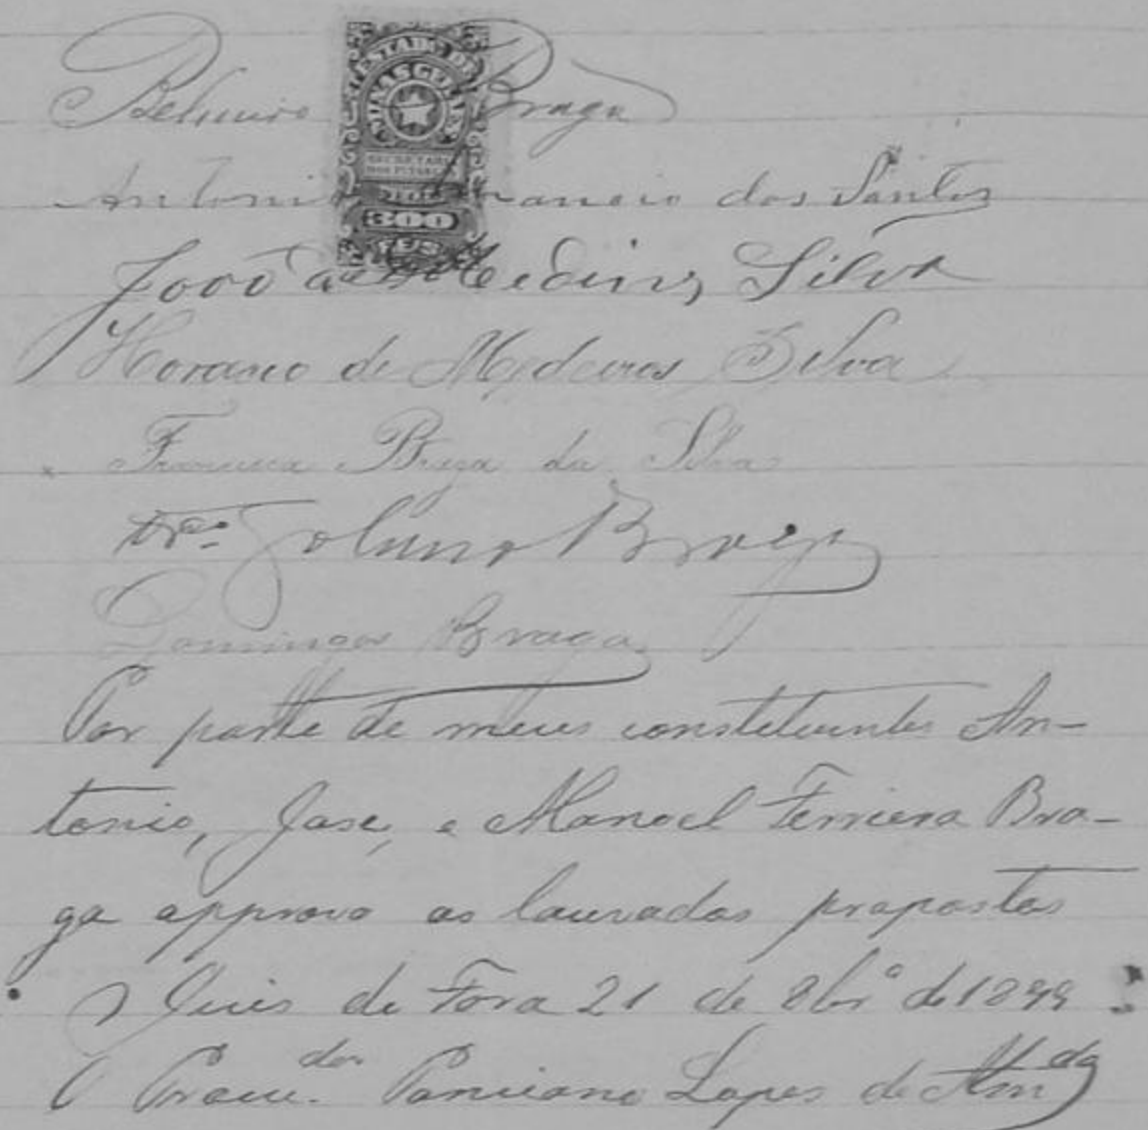 Belmiro Braga
ESTADO DE
MINAS GERAES
300
REIS
Antonio dos Santos
João de Medeiros Silva
Horacio de Medeiros Silva
Francisca Braga da Silva
Braga
Domingos Braga
Por parte de meus constituintes An-
tonio, José, e Manoel Ferreira Bra-
ga approvo os louvados propostos
Juis de Fora 21 de 8br.º de 1899
O Procu.dor Ponciano Lopes de Alm.da